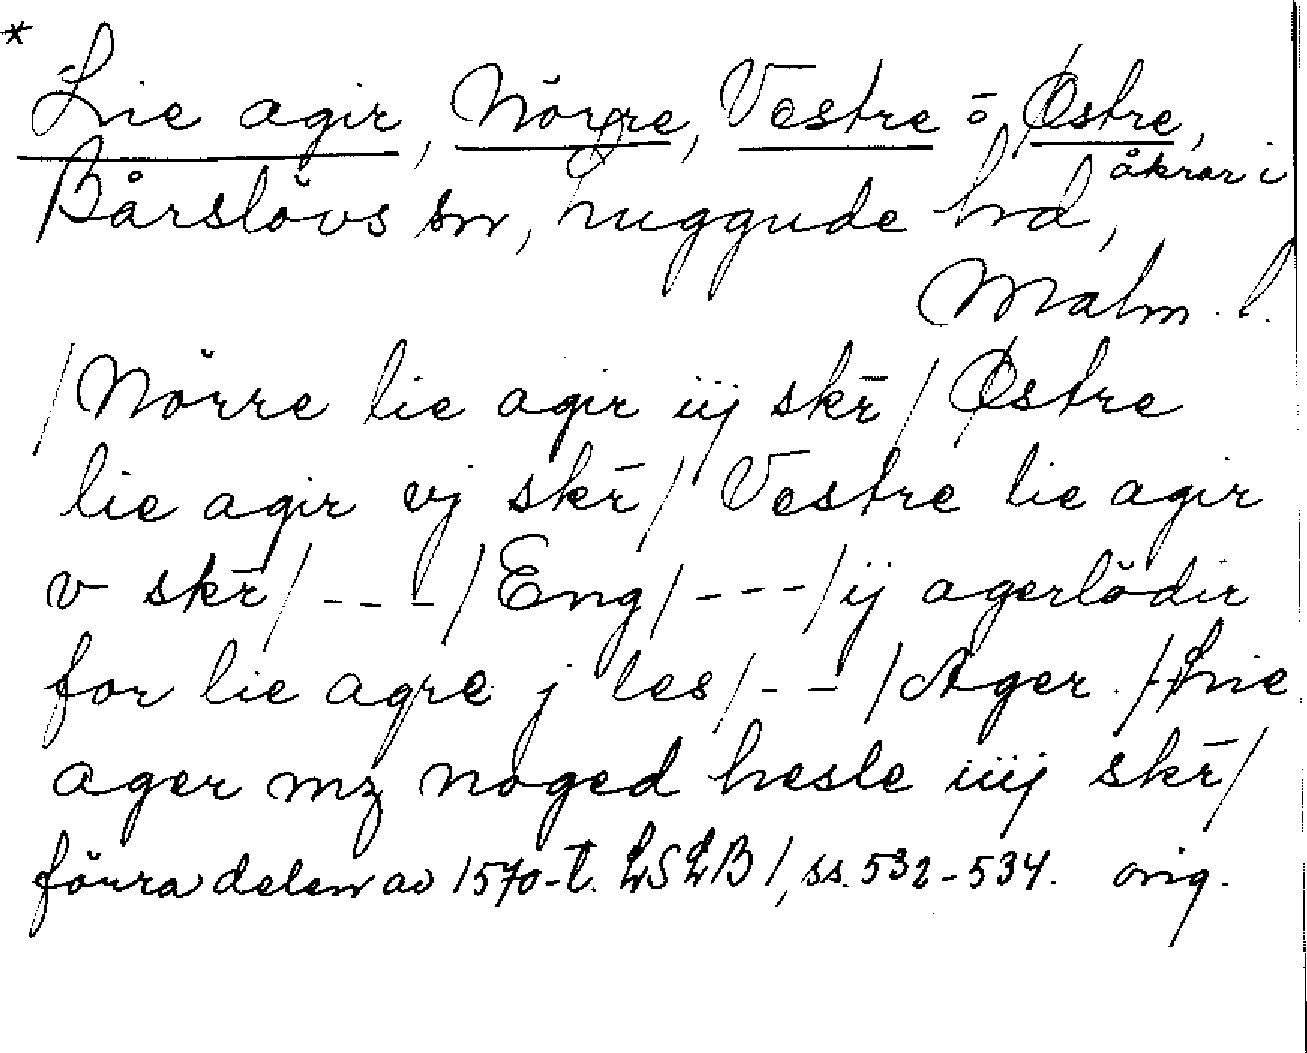 * Lie agir, Nörre, Vestre o Østre,
åkrar i
Bårslövs sn, Luggude hd,
Malm. l.
/Nörre lie agir iij skr̄/ Østre
lie agir vj skr̄/ Vestre lie agir
v skr̄/ - - - / Eng/ - - - /ij agerlödir
for lie agre j les/ - - /Ager ./Lie
ager mz noged hesle iiij skr̄/
förra delen av 1570-t. LSLB 1, ss. 532-534. orig.